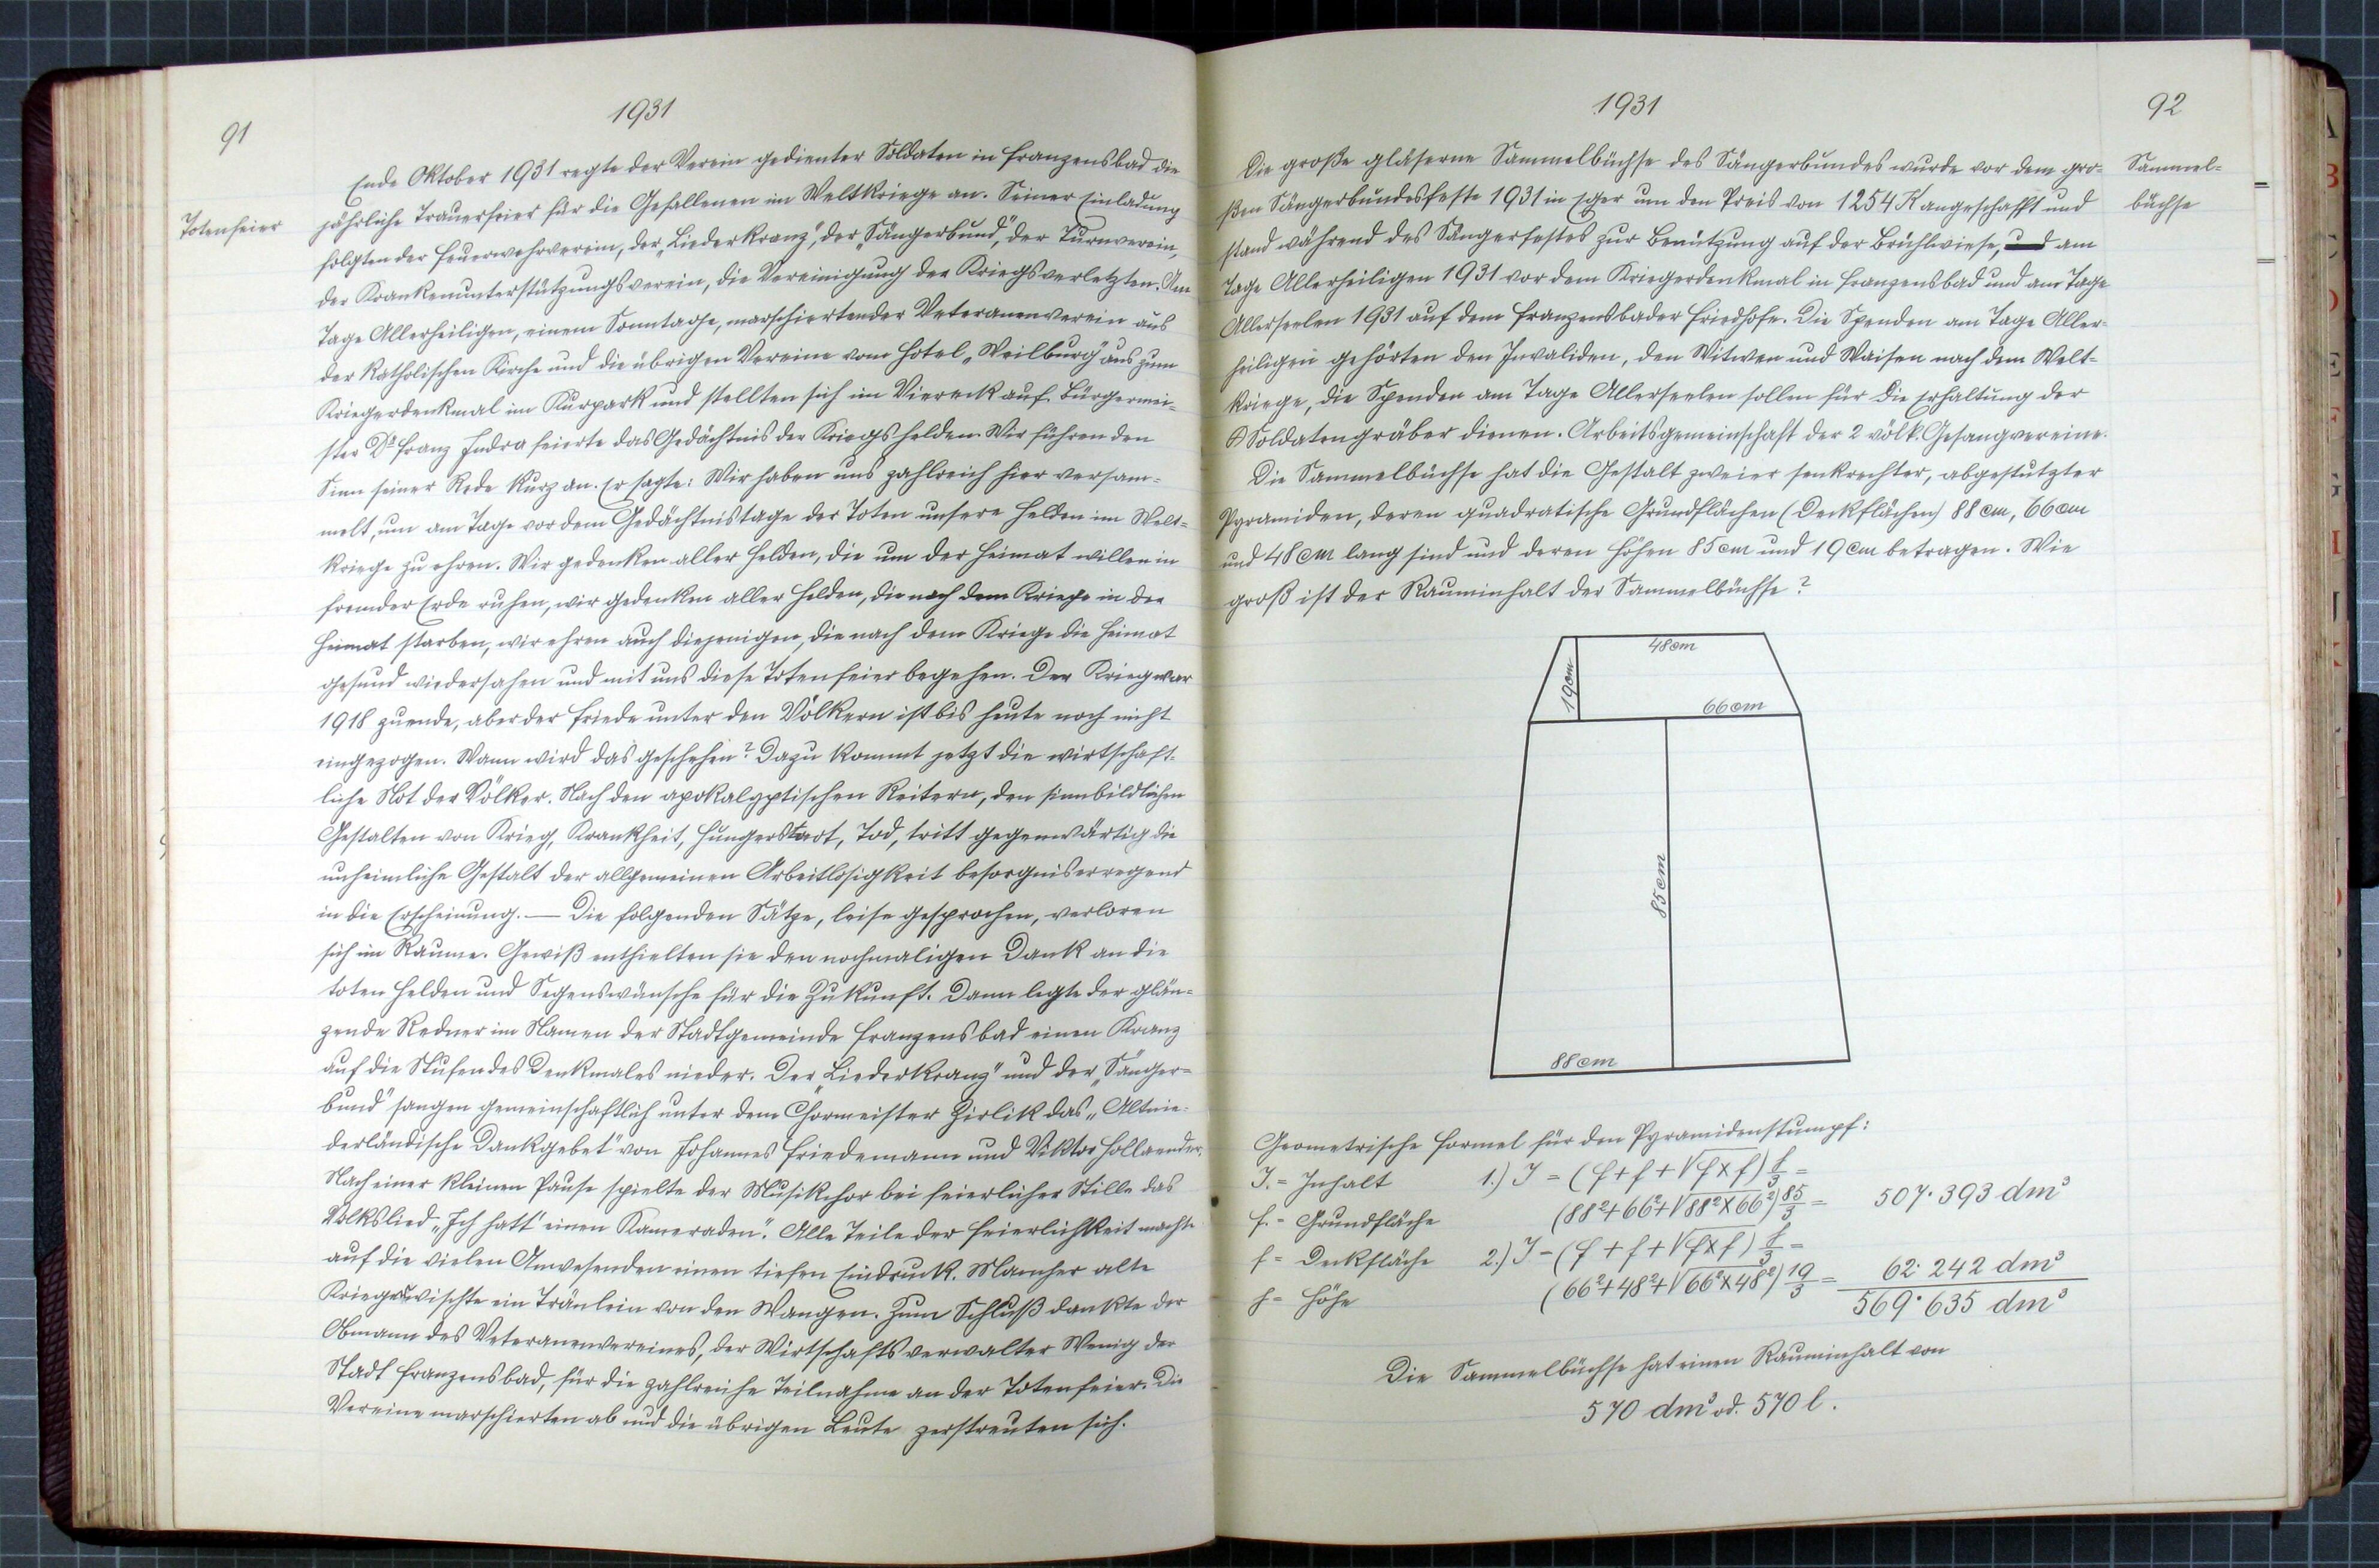 91
1931
Totenfeier
Ende Oktober 1931 regte der Verein gedienter Soldaten in Franzensbad die
jährliche Trauerfeier für die Gefallenen im Weltkriege an. Seiner Einladung
folgten der Feuerwehrverein, der „Liederkranz", der „Sängerbund", der Turnverein,
der Krankenunterstützungsverein, die Vereinigung der Kriegsverletzten. Am
Tage Allerheiligen, einem Sonntage, marschierten der Veteranenverein aus
der Katholischen Kirche und die übrigen Vereine vom Hotel „Weilburg" aus zum
Kriegerdenkmal im Kurpark und stellten sich im Viereck auf. Bürgermei-
ster Dr. Franz Indra feierte das Gedächtnis der Kriegshelden. Wir führen den
Sinn seiner Rede kurz an. Er sagte: Wir haben uns zahlreich hier versam-
melt, um am Tage vor dem Gedächtnistage der Toten unsere Helden im Welt-
kriege zu ehren. Wir gedenken aller Helden, die um der Heimat willen in
fremder Erde ruhen, wir gedenken aller Helden, die nach dem Kriege in der
Heimat starben, wir ehren auch diejenigen, die nach dem Kriege die Heimat
gesund wiedersahen und mit uns diese Totenfeier begehen. Der Krieg war
1918 zuende, aber der Friede unter den Völkern ist bis heute noch nicht
eingezogen. Wann wird das geschehen? Dazu kommt jetzt die wirtschaft-
liche Not der Völker. Nach den apokalyptischen Reitern, den sinnbildlichen
Gestalten von Krieg, Krankheit, Tod, tritt gegenwärtig die
unheimliche Gestalt der allgemeinen Arbeitlosigkeit besorgniserregend
in die Erscheinung. — Die folgenden Sätze, leise gesprochen, verloren
sich im Raume. Gewiß enthielten sie den nochmaligen Dank an die
toten Helden und Segenswünsche für die Zukunft. Dann legte der glän-
zende Redner im Namen der Stadtgemeinde Franzensbad einen Kranz
auf die Stufen des Denkmales nieder. Der „Liederkranz" und der „Sänger-
bund" sangen gemeinschaftlich unter dem Chormeister Zirlik das „Altnie-
derländische Dankgebet" von Johannes Friedemann und Viktor Hollaender.
Nach einer kleinen Pause spielte der Musikchor bei feierlicher Stille das
Volkslied „Ich hatt' einen Kameraden". Alle Teile der Feierlichkeit machte
auf die vielen Anwesenden einen tiefen Eindruck. Mancher alte
Krieger wischte ein Tränlein von den Wangen. Zum Schluß dankte der
Obmann des Veteranenvereines, der Wirtschaftsverwalter Wenig der
Stadt Franzensbad, für die zahlreiche Teilnahme an der Totenfeier. Die
Vereine marschierten ab und die übrigen Leute zerstreuten sich.
1931
92
Sammel-
büchse
Die große gläserne Sammelbüchse des Sängerbundes wurde vor dem gro-
ßen Sängerbundesfeste 1931 in Eger um den Preis von 1254 K angeschafft und
stand während des Sängerfestes zur Benützung auf der Brühlwiese, und am
Tage Allerheiligen 1931 vor dem Kriegerdenkmal in Franzensbad und am Tage
Allerseelen 1931 auf dem Franzensbader Friedhofe. Die Spenden am Tage Aller-
heiligen gehörten den Invaliden, den Witwen und Waisen nach dem Welt-
kriege, die Spenden am Tage Allerseelen sollen für die Erhaltung der
Soldatengräber dienen. Arbeitsgemeinschaft der 2 völk. Gesangvereine.
Die Sammelbüchse hat die Gestalt zweier senkrechter, abgestutzter
Pyramiden, deren quadratische Grundflächen (Deckflächen) 88 cm, 66 cm
und 48 cm lang sind und deren Höhen 85 cm und 19 cm betragen. Wie
groß ist der Rauminhalt der Sammelbüchse?
48cm
19cm
66cm
85cm
88cm
Geometrische Formel für den Pyramidenstumpf:
J. = Inhalt 1.) J = (F + f + √F×f) h/3 =
F. = Grundfläche (88² + 66² + √88² × 66²) 85/3 = 507·393 dm³
f = Deckfläche 2.) J = (F + f + √F×f) h/3 =
h = Höhe (66² + 48² + √66² × 48²) 19/3 = 62·242 dm³
569·635 dm³
Die Sammelbüchse hat einen Rauminhalt von
570 dm³ od. 570 l.